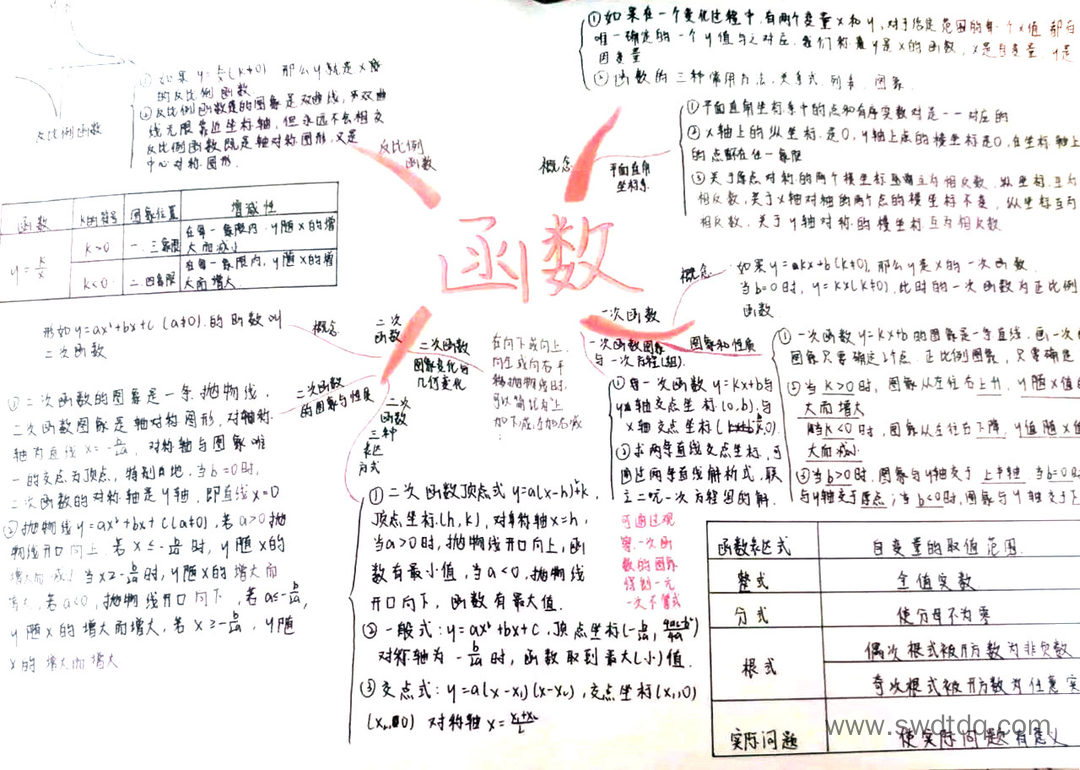 函数
反比例函数
①如果y=k/x(k≠0) 那么y就是x的
的反比例函数
②反比例函数的图象是双曲线,
线无限靠近坐标轴,但永远不会相交
反比例函数既是轴对称图形,又是
中心对称图形.
反比例
函数
函数 k的符号 图象位置 增减性
y=k/x
k>0 一.三象限 在每一象限内,y随x的增
大而减小
k<0 二.四象限 在每一象限内,y随x的增
大而增大
概念
①如果在一个变化过程中,有两个变量x和y,对于给定范围的每一个x值 都有
唯一确定的一个y值与之对应,我们称y是x的函数,x是自变量,y是
因变量
②函数的三种常用方法.关系式.列表.图象
平面直角
坐标系
①平面直角坐标系中的点和有序实数对是一一对应的
②x轴上的纵坐标是0,y轴上点的横坐标是0,在坐标轴上
的点不在任一象限
③关于原点对称的两个横坐标互为相反数,纵坐标互为
相反数,关于x轴对称的两个点的横坐标不变,纵坐标互为
相反数,关于y轴对称的横坐标互为相反数
一次函数
概念
如果y=kx+b(k≠0),那么y是x的一次函数
当b=0时,y=kx(k≠0),此时的一次函数为正比例
函数
图象和性质
①一次函数y=kx+b的图象是一条直线,画一次
图象只要确定2个点.正比例图象,只要确定
②当k>0时,图象从左往右上升,y随x值的
大而增大
当k<0时,图象从左往右下降,y值随x值
大而减小
③当b>0时,图象与y轴交于上半轴,当b=0时
与y轴交于原点;当b<0时,图象与y轴交于下
一次函数图象
与一次方程(组)
①每一次函数y=kx+b与
y轴交点坐标(0,b),与
x轴交点坐标
②求两条直线交点坐标,可
通过两条直线解析式,联
立二元一次方程组的解.
可通过观
察一次函
数的图象
得到一元
一次不等式
二次
函数
概念
形如y=ax²+bx+c(a≠0)的函数叫
二次函数
二次函数
图象变化的
几何变化
在向下或向上
向左或向右平
移抛物线时,
可以简记为上
加下减,左加右减
二次函数
的图象与性质
①二次函数的图象是一条抛物线.
二次函数图象是轴对称图形,对称
轴为直线x=-b/2a,对称轴与图象唯
一的交点为顶点,特别地,当b=0时,
二次函数的对称轴是y轴,即直线x=0
②抛物线y=ax²+bx+c(a≠0),若a>0抛
物线开口向上.若x≤-b/2a时,y随x的
增大而减小 当x≥-b/2a时,y随x的增大而
增大,若a<0,抛物线开口向下,若a≤-b/2a,
y随x的增大而增大,若x≥-b/2a,y随
x的增大而增大
二次
函数
三种
表达
方式
①二次函数顶点式y=a(x-h)²+k,
顶点坐标(h,k),对称轴x=h,
当a>0时,抛物线开口向上,函
数有最小值,当a<0,抛物线
开口向下,函数有最大值.
②一般式:y=ax²+bx+c,顶点坐标(-b/2a,4ac-b²/4a)
对称轴为-b/2a时,函数取到最大(小)值.
③交点式:y=a(x-x₁)(x-x₂),交点坐标(x₁,0)
(x₂,0) 对称轴x=x₁+x₂/2
函数表达式 自变量的取值范围
整式 全值实数
分式 使分母不为零
根式 偶次根式被开方数为非负数
奇次根式被开方数为任意实
实际问题 使实际问题有意义
www.swdtdq.com